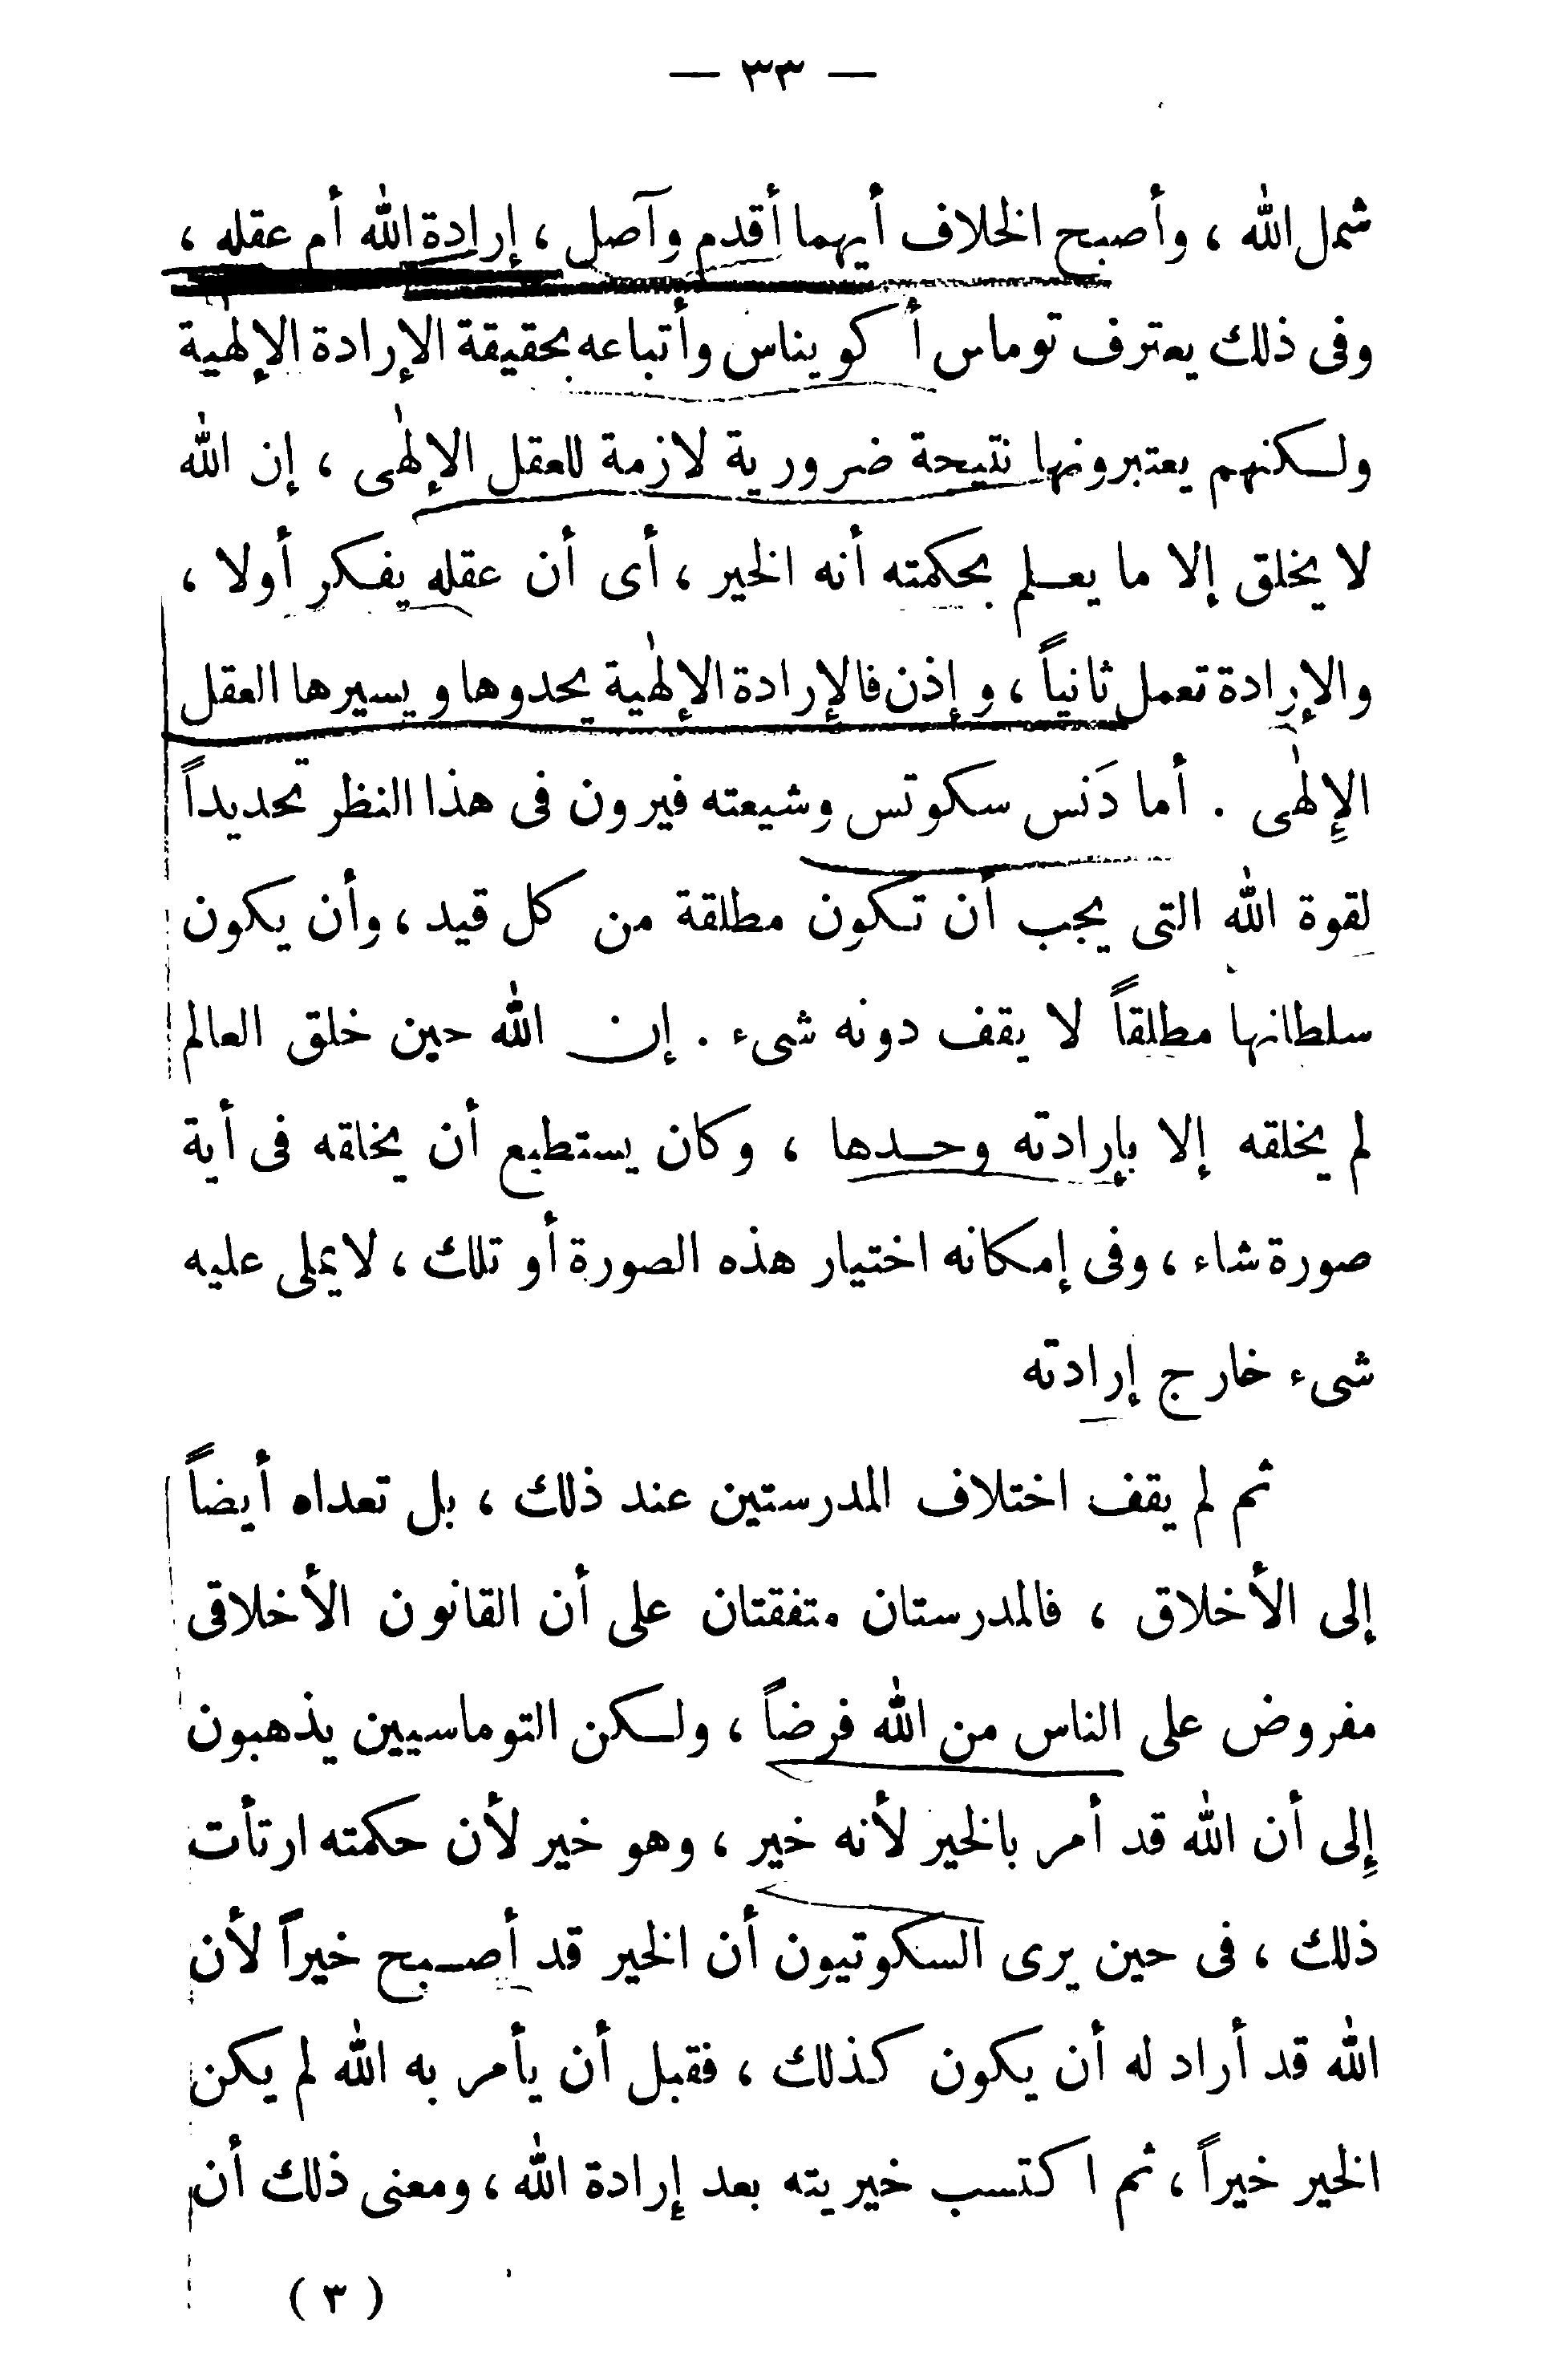 — ٣٣ —
شمل الله ، وأصبح الخلاف أيهما أقدم وآصل ، إرادة الله أم عقله ،
وفى ذلك يعترف توماس أكويناس وأتباعه بحقيقة الإرادة الإلهية
ولكنهم يعتبرونها نتيجة ضرورية لازمة للعقل الإلهٰى ، إن الله
لا يخلق إلا ما يعلم بحكمته أنه الخير ، أى أن عقله يفكر أولا ،
والإرادة تعمل ثانياً ، وإذن فالإرادة الإلهٰية يحدوها ويسيرها العقل
الإِلهٰى . أما دَنس سكوتس وشيعته فيرون فى هذا النظر تحديداً
لقوة الله التى يجب أن تكون مطلقة من كل قيد ، وأن يكون
سلطانها مطلقاً لا يقف دونه شىء . إن الله حين خلق العالم
لم يخلقه إلا بإرادته وحدها ، وكان يستطيع أن يخلقه فى أية
صورة شاء ، وفى إمكانه اختيار هذه الصورة أو تلك ، لا يملى عليه
شىء خارج إرادته
ثم لم يقف اختلاف المدرستين عند ذلك ، بل تعداه أيضاً
إلى الأخلاق ، فالمدرستان متفقتان على أن القانون الأخلاقى
مفروض على الناس من الله فرضاً ، ولكن التوماسيين يذهبون
إِلى أن الله قد أمر بالخير لأنه خير ، وهو خير لأن حكمته ارتأت
ذلك ، فى حين يرى السكوتيون أن الخير قد أصبح خيراً لأن
الله قد أراد له أن يكون كذلك ، فقبل أن يأمر به الله لم يكن
الخير خيراً ، ثم اكتسب خيريته بعد إرادة الله ، ومعنى ذلك أن
( ٣ )